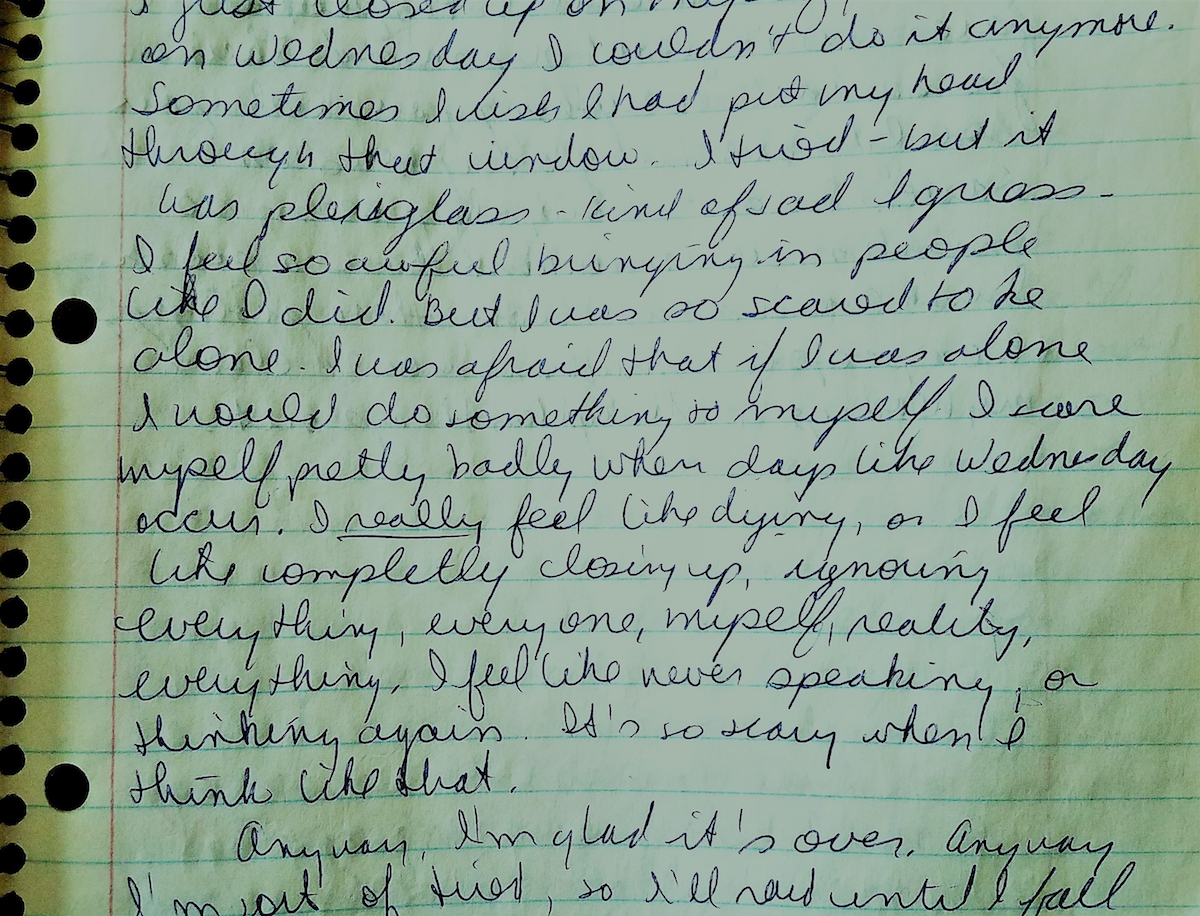 I just closed up on myself,
on Wednesday I couldn't do it anymore.
Sometimes I wish I had put my head
through that window. I tried - but it
was plexiglass - kind of sad I guess -
I feel so awful bringing in people
like I did. But I was so scared to be
alone. I was afraid that if I was alone
I would do something to myself. I scare
myself pretty badly when days like Wednesday
occur. I really feel like dying, or I feel
like completly closing up, ignoring
everything, everyone, myself, reality,
everything. I feel like never speaking, or
thinking again. It's so scary when I
think like that.
Anyway, I'm glad it's over. Anyway
I'm sort of tired, so I'll read until I fall